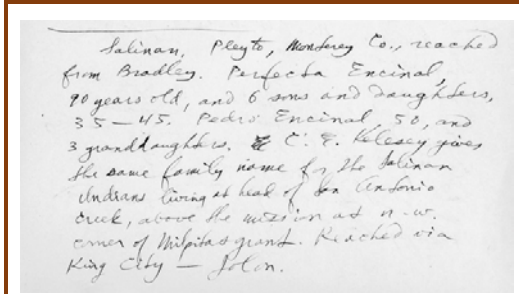 Salinan, Pleyto, Monterey Co., reached
from Bradley. Perfecta Encinal,
90 years old, and 6 sons and daughters,
35—45. Pedro Encinal, 50, and
3 granddaughters. C. E. Kelesey gives
the same family name for the Salinan
Indians living at head of San Antonio
Creek, above the mission at n.w.
corner of Milpitas grant. Reached via
King City — Jolon.